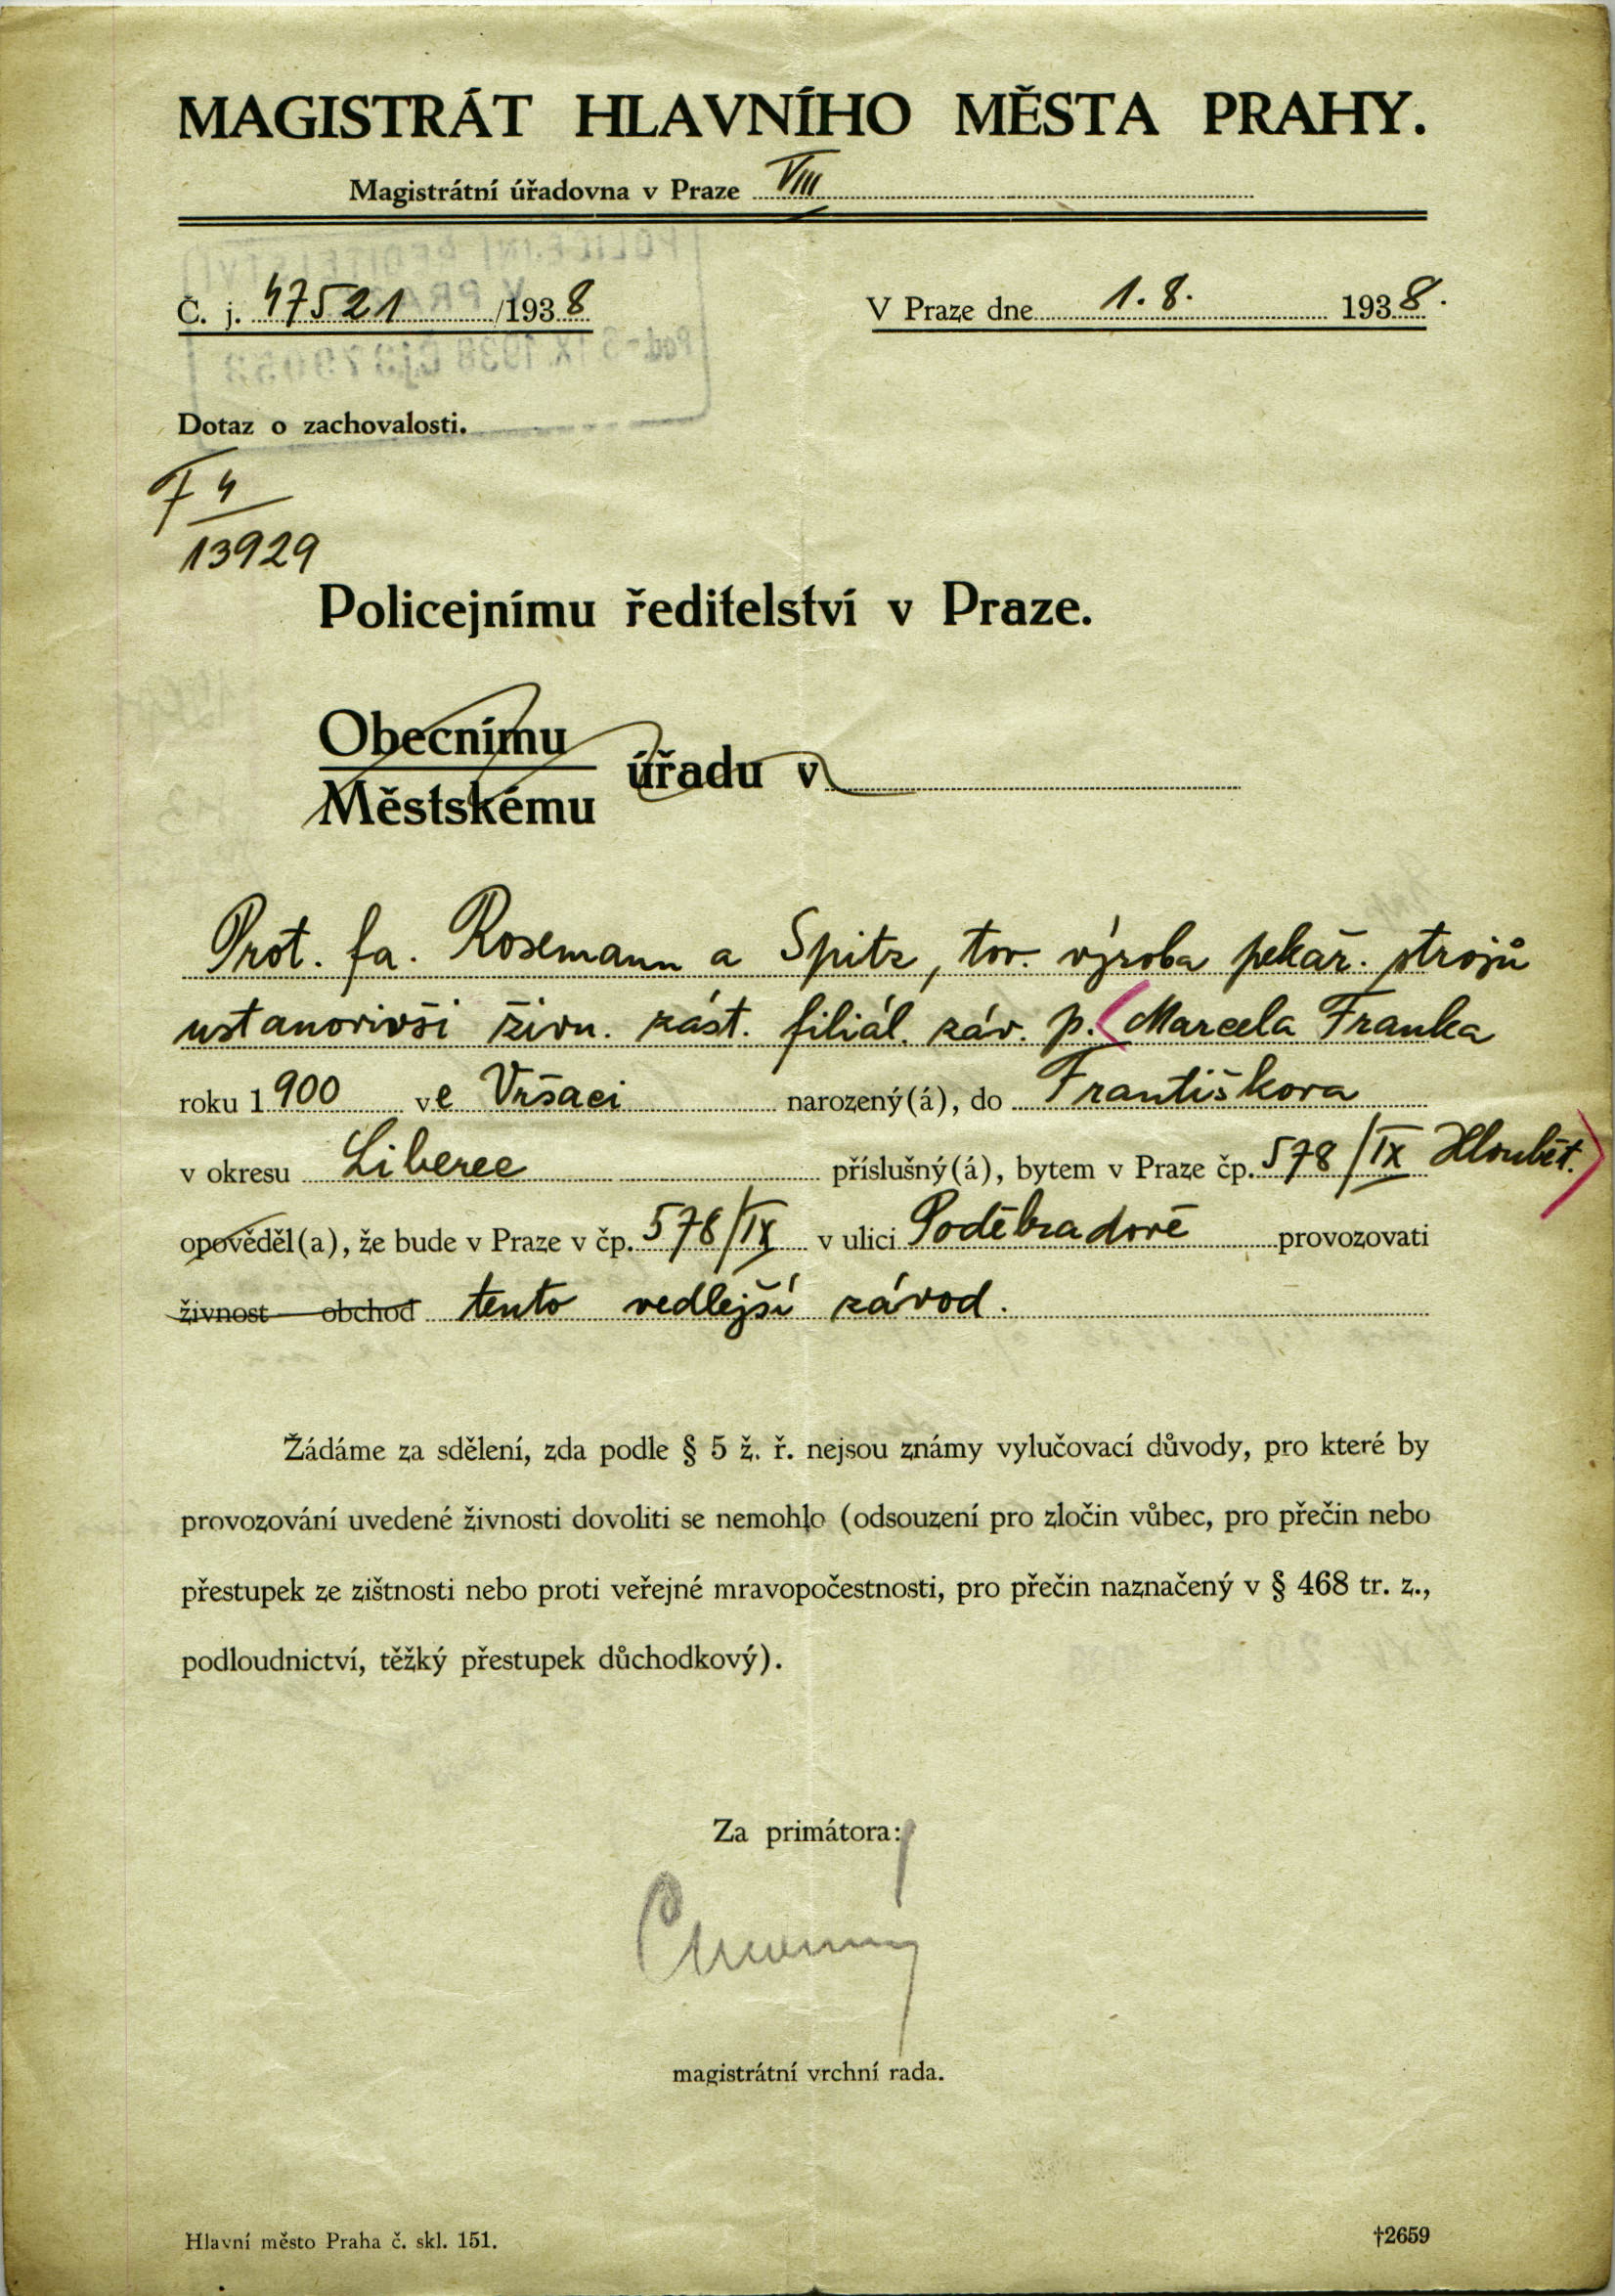 MAGISTRÁT HLAVNÍHO MĚSTA PRAHY.
Magistrátní úřadovna v Praze VIII
Č. j. 47521 /1938
V Praze dne 1.8. 1938.
Dotaz o zachovalosti.
F 4
13929
Policejnímu ředitelství v Praze.
Obecnímu
Městskému
úřadu v
Prot. fa. Rosemann a Spitz, tov. výroba pekař. strojů
ustanovivši živn. zást. filiál. záv. p. Marcela Franka
roku 1900 ve Vršaci narozený(á), do Františkova
v okresu Liberec příslušný(á), bytem v Praze čp. 578/IX Hloubět.
opověděl(a), že bude v Praze v čp. 578/IX v ulici Poděbradově provozovati
živnost — obchod tento vedlejší závod.
Žádáme za sdělení, zda podle § 5 ž. ř. nejsou známy vylučovací důvody, pro které by
provozování uvedené živnosti dovoliti se nemohlo (odsouzení pro zločin vůbec, pro přečin nebo
přestupek ze zištnosti nebo proti veřejné mravopočestnosti, pro přečin naznačený v § 468 tr. z.,
podloudnictví, těžký přestupek důchodkový).
Za primátora:
magistrátní vrchní rada.
Hlavní město Praha č. skl. 151.
†2659